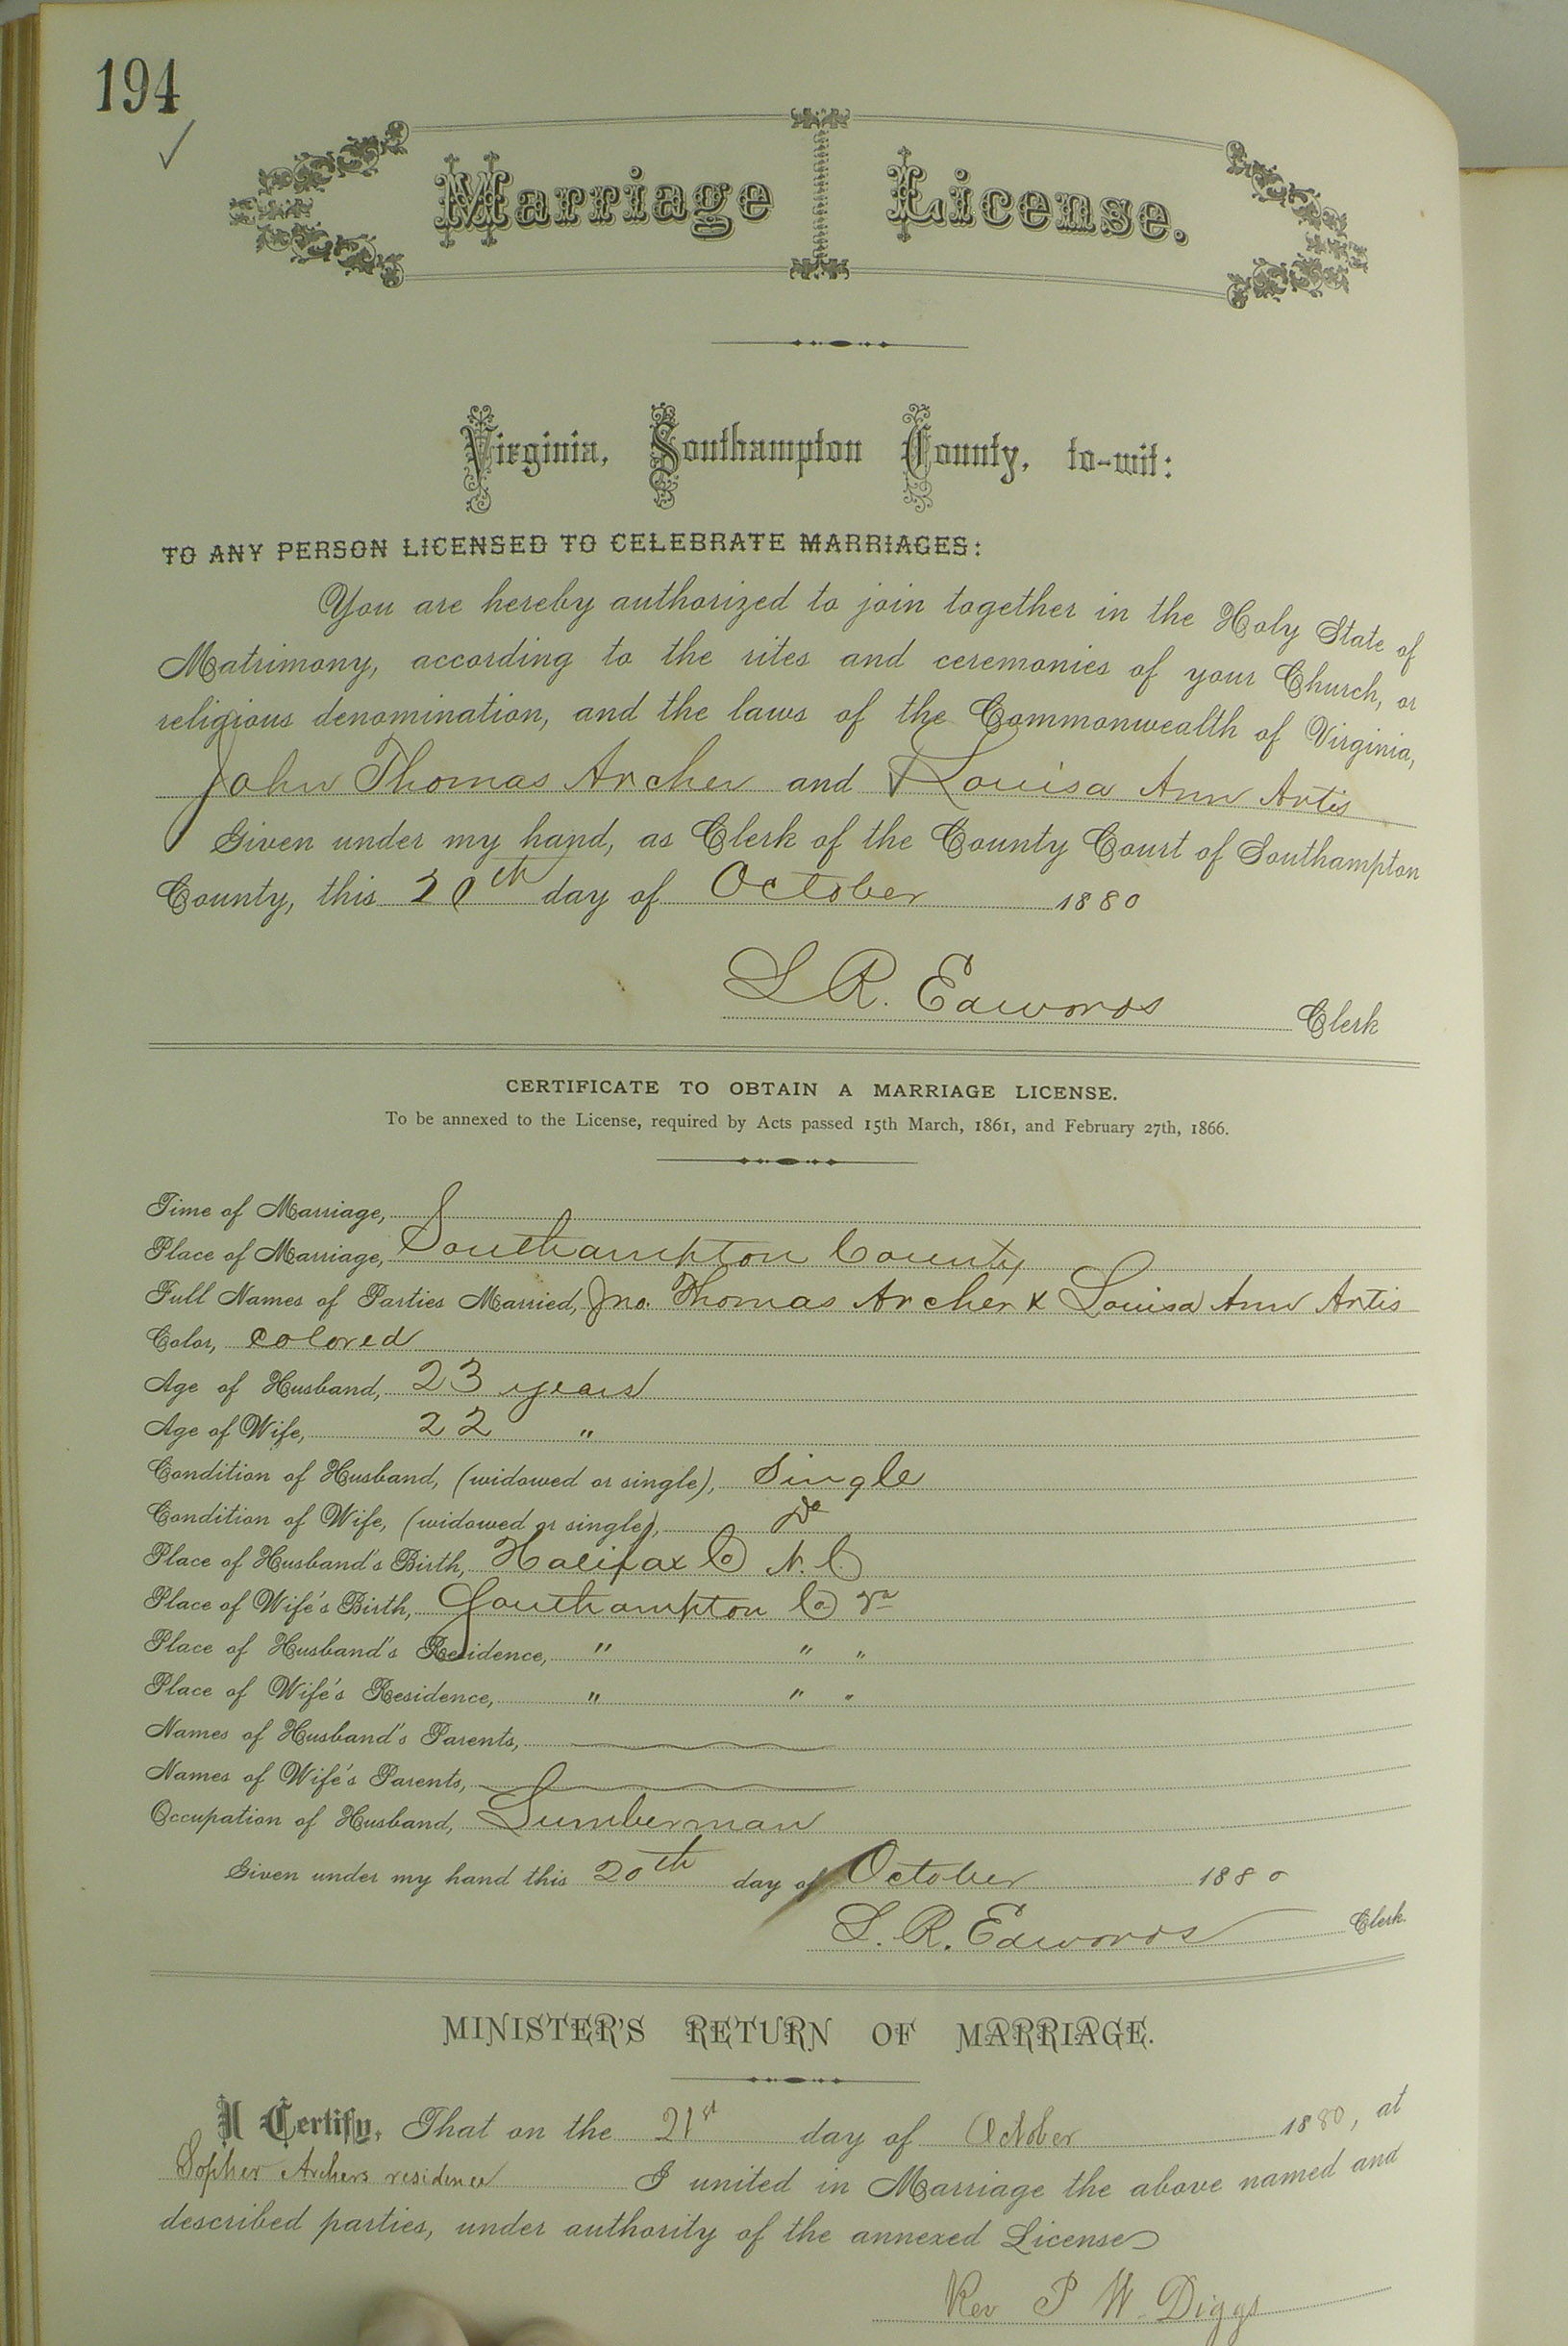 194
Marriage License.
Virginia, Southampton County, to-wit:
TO ANY PERSON LICENSED TO CELEBRATE MARRIAGES:
You are hereby authorized to join together in the Holy State of
Matrimony, according to the rites and ceremonies of your Church, or
religious denomination, and the laws of the Commonwealth of Virginia,
John Thomas Archer and Louisa Ann Artis
Given under my hand, as Clerk of the County Court of Southampton
County, this 20th day of October 1880
L R. Edwards Clerk
CERTIFICATE TO OBTAIN A MARRIAGE LICENSE.
To be annexed to the License, required by Acts passed 15th March, 1861, and February 27th, 1866.
Time of Marriage,
Place of Marriage, Southampton County
Full Names of Parties Married, Jno. Thomas Archer & Louisa Ann Artis
Color, Colored
Age of Husband, 23 years
Age of Wife, 22 "
Condition of Husband, (widowed or single), Single
Condition of Wife, (widowed or single), Do
Place of Husband's Birth, Halifax Co N. C.
Place of Wife's Birth, Southampton Co Va
Place of Husband's Residence, " " "
Place of Wife's Residence, " " "
Names of Husband's Parents,
Names of Wife's Parents,
Occupation of Husband, Lumberman
Given under my hand this 20th day of October 1880
L. R. Edwards Clerk.
MINISTER'S RETURN OF MARRIAGE.
I Certify, That on the 21st day of October 1880, at
Archers residence I united in Marriage the above named and
described parties, under authority of the annexed License
Rev P W. Diggs